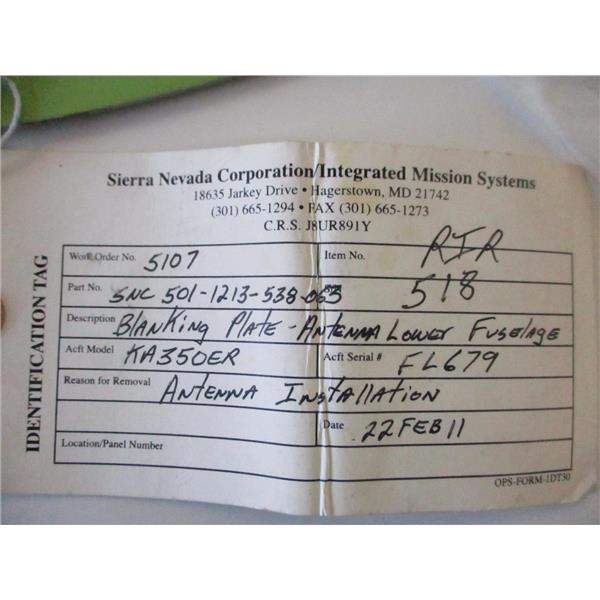 Sierra Nevada Corporation/Integrated Mission Systems
18635 Jarkey Drive • Hagerstown, MD 21742
(301) 665-1294 • FAX (301) 665-1273
C.R.S. J8UR891Y
IDENTIFICATION TAG
Work Order No. 5107 Item No. RIR
Part No. SNC 501-1213-538-063 518
Description Blanking Plate - Antenna Lower Fuselage
Acft Model KA350ER Acft Serial # FL679
Reason for Removal Antenna Installation
Date 22 FEB 11
Location/Panel Number
OPS-FORM-1DT30